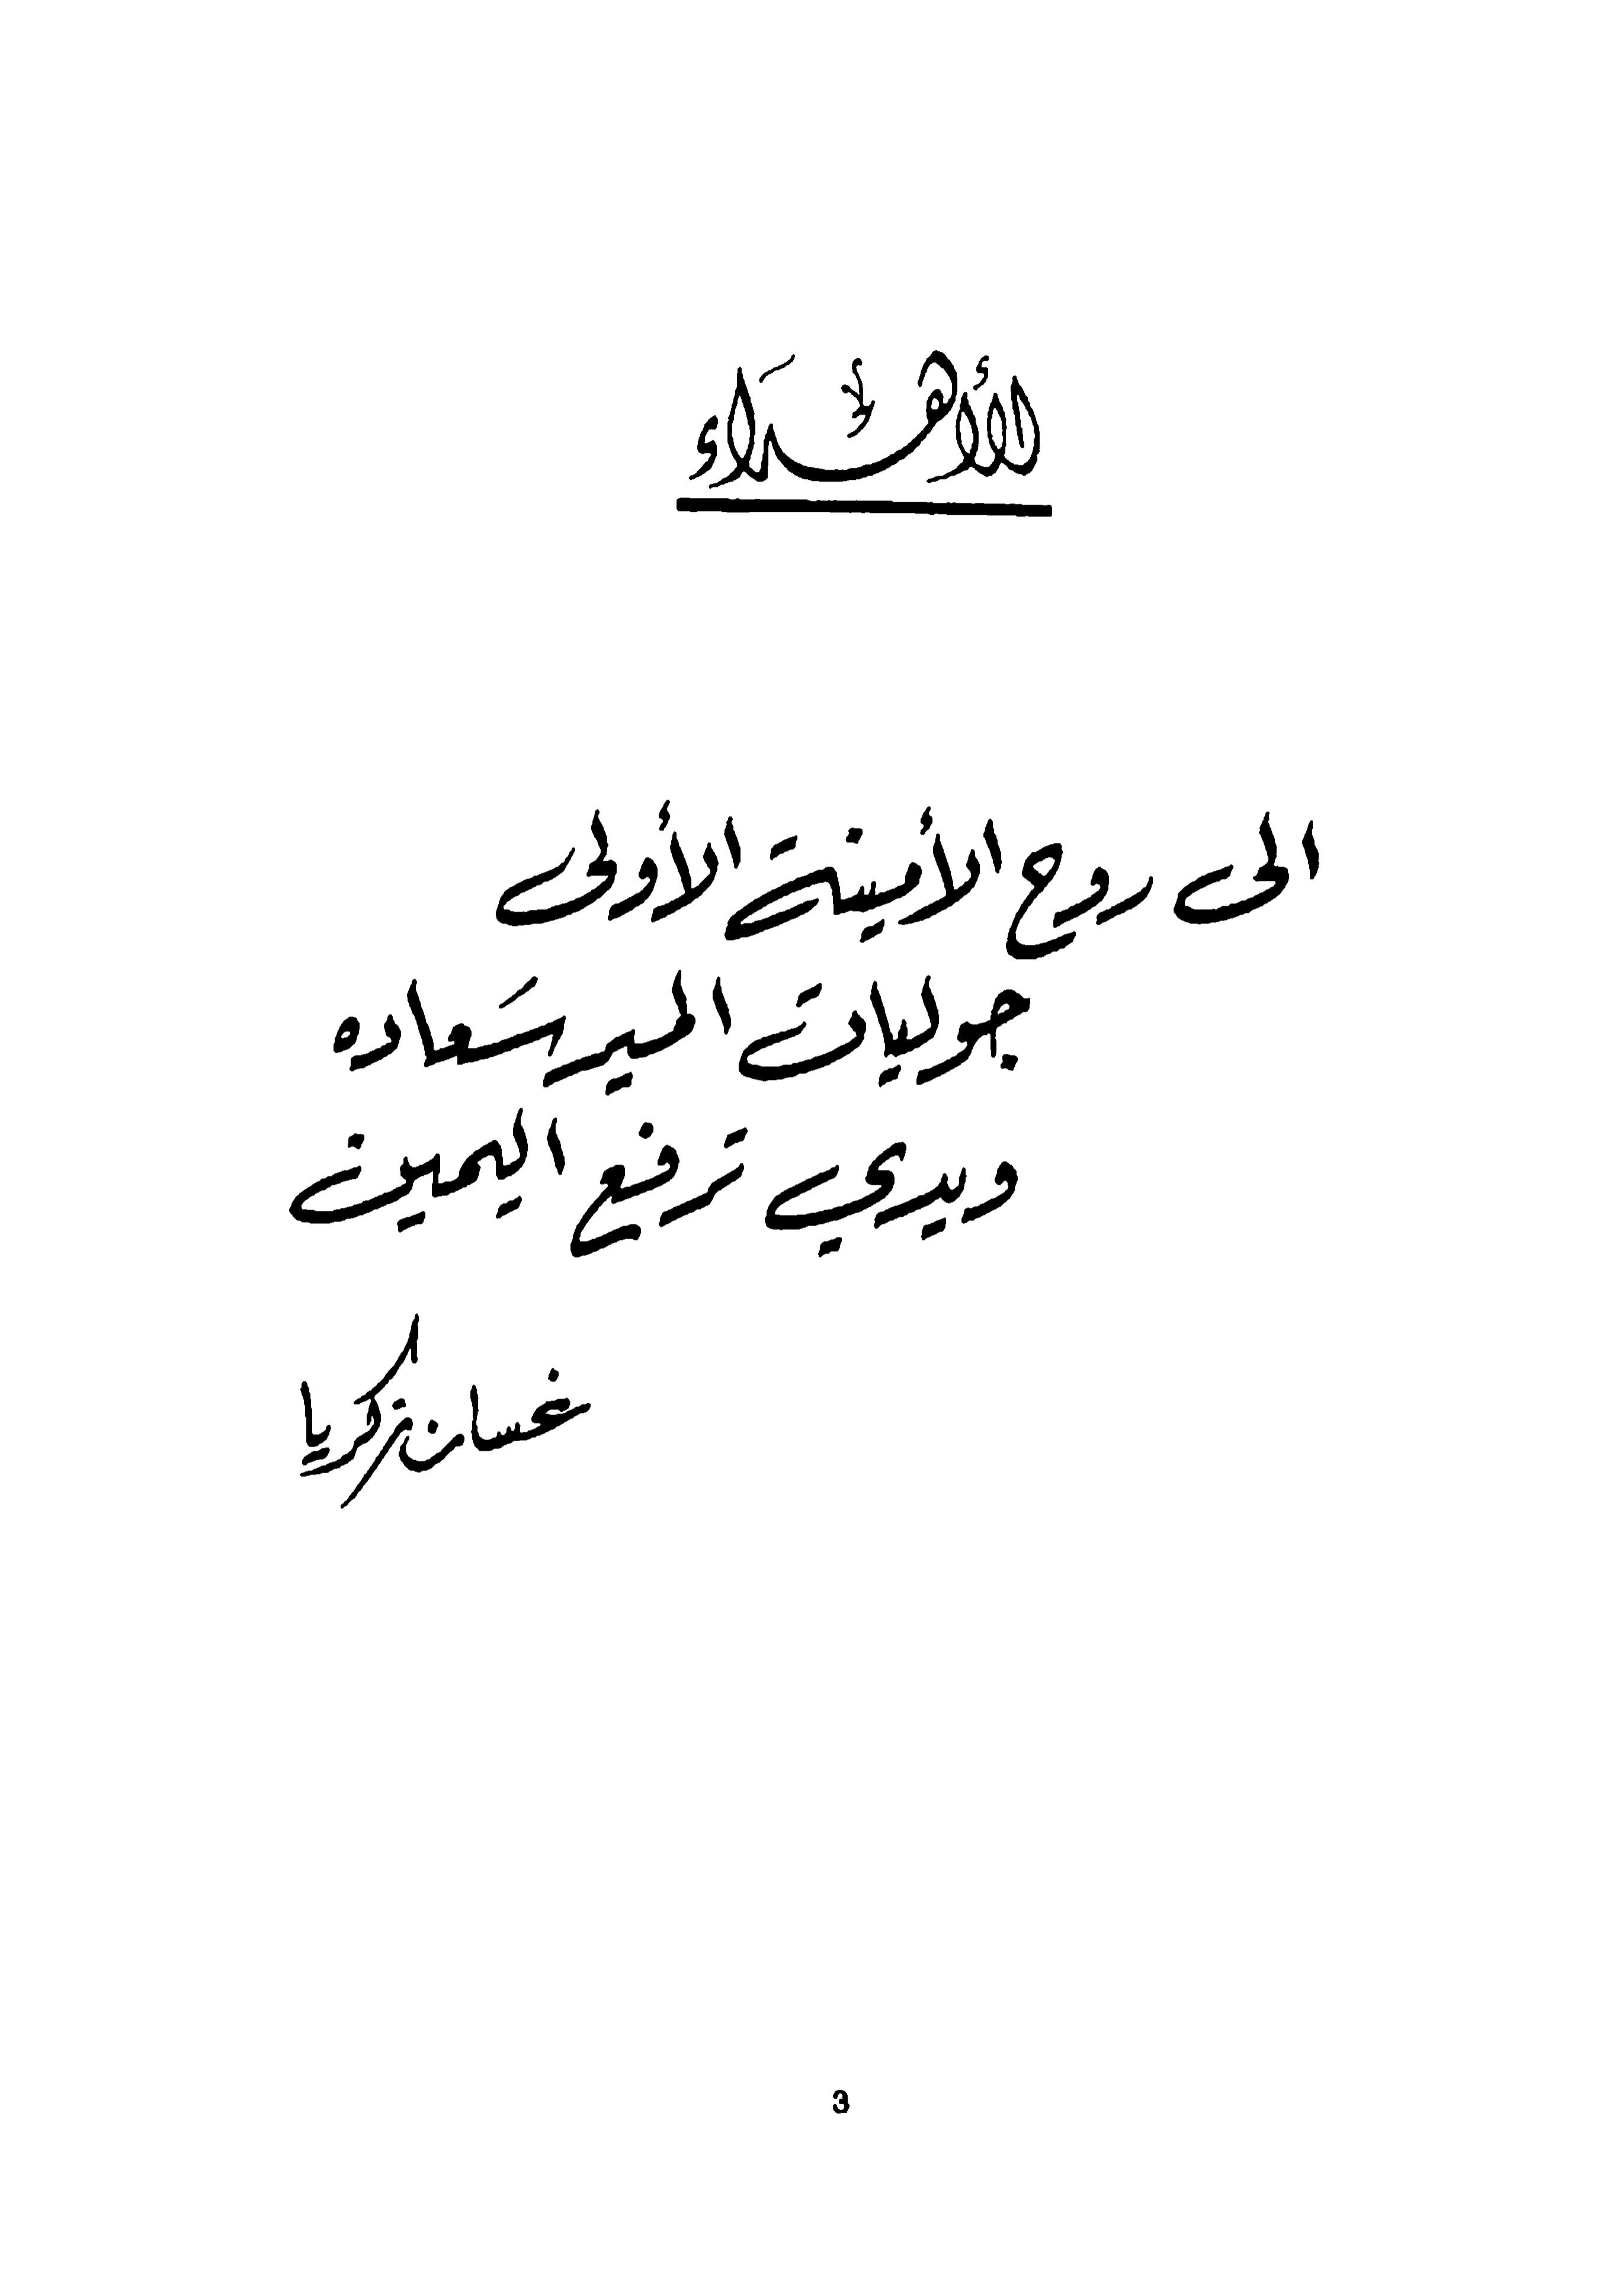 الأهداء
الى روح الأمينة الأولى
جولييت المير سَعاده
ويدي ترفع اليمين
غسان زكريا
3